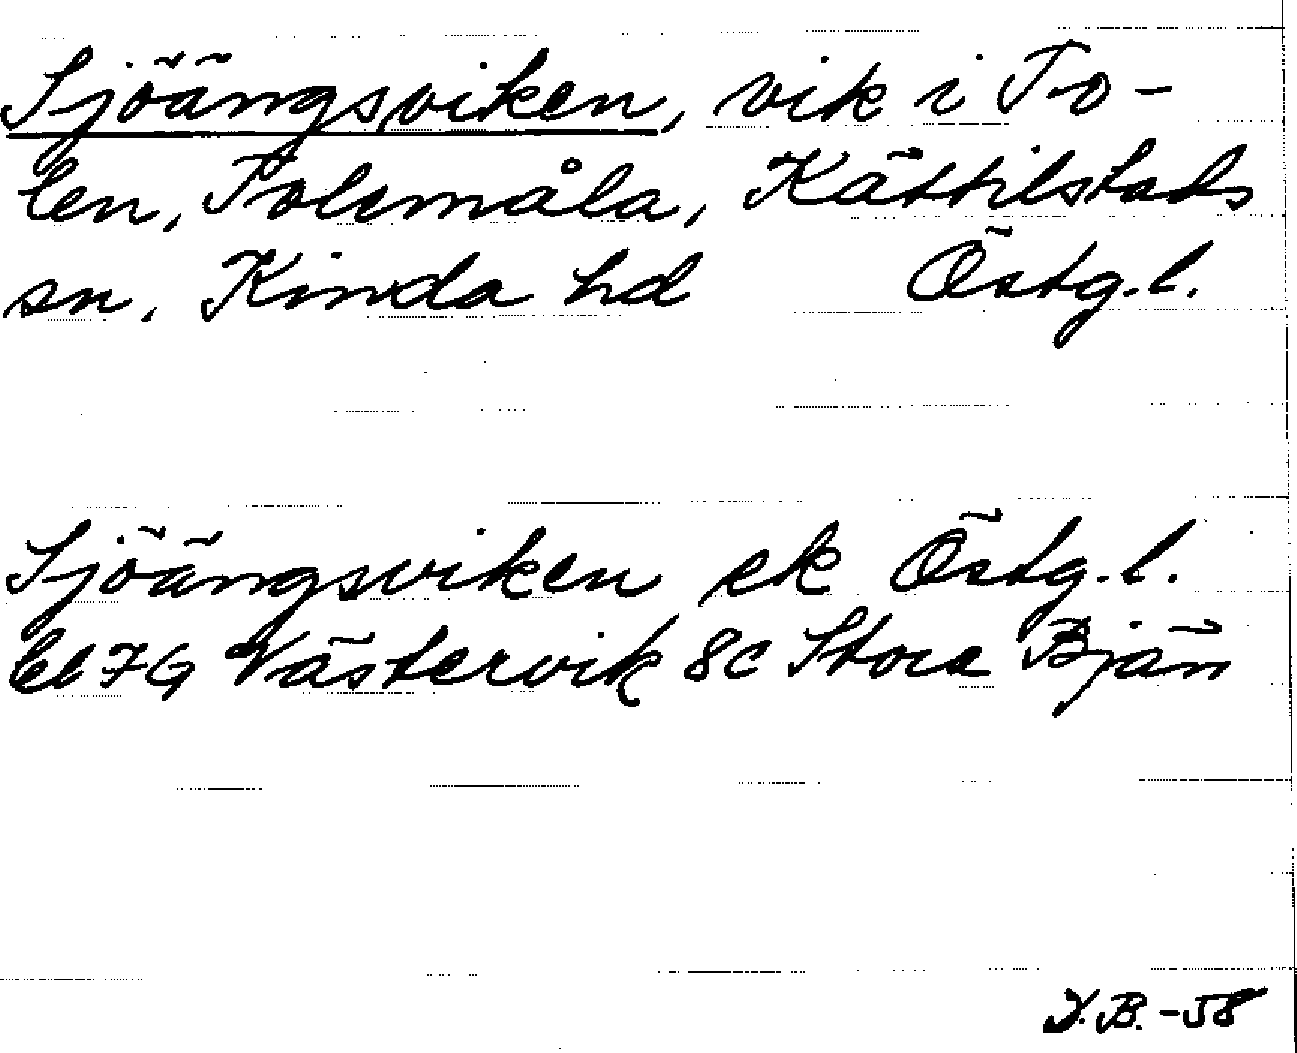 Sjöängsviken, vik i To-
len, Tolemåla, Kättilstads
sn, Kinda hd Östg.l.
Sjöängsviken ek Östg.l.
bl 7G Västervik 8c Stora Bjän